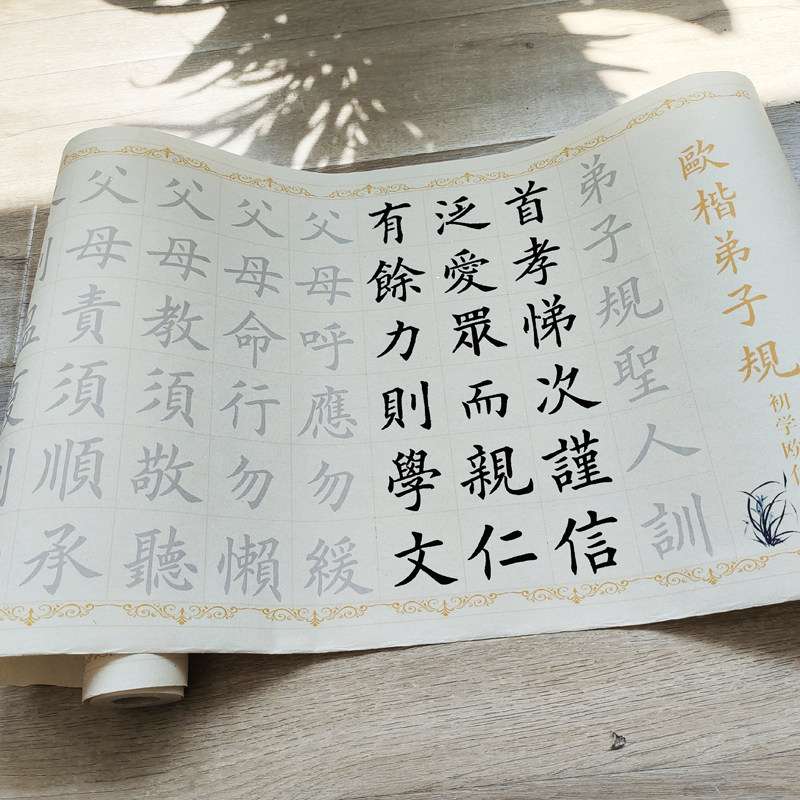 歐楷弟子規
初学欧
弟子規聖人訓
首孝悌次謹信
泛愛眾而親仁
有餘力則學文
父母呼應勿緩
父母命行勿懶
父母教須敬聽
父母責須順承